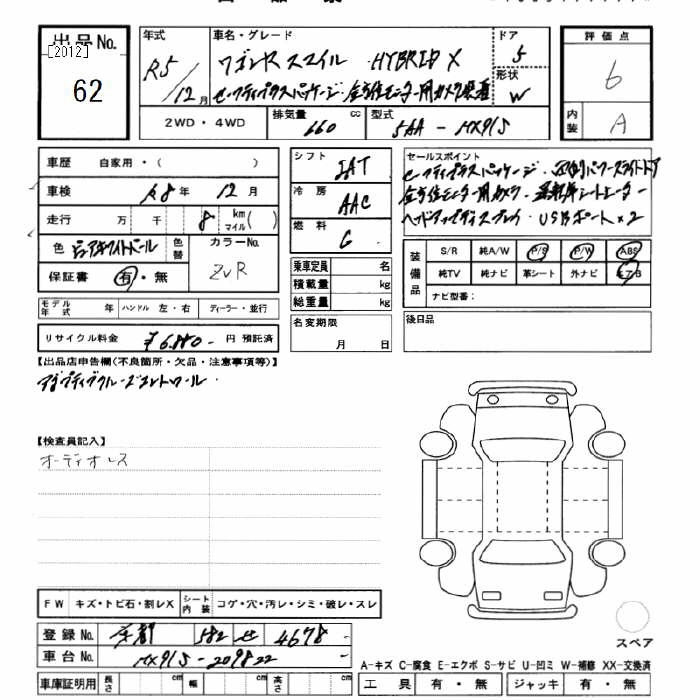 出品No.
[2012]
62
年式
R5/12月
車名・グレード
ワゴンRスマイル HYBRID X
セーフティプラスパッケージ・全方位モニター用カメラ装着
ドア
5
形状
W
2WD・4WD
排気量
660 cc
型式
5AA - MX91S
評価点
6
内装
A
車歴 自家用・( )
車検 R8年 12月
走行 万 千 8 km マイル( )
色 ピュアホワイトパール
色替
カラーNo.
ZVR
保証書 有・無
モデル年式 年 ハンドル 左・右 ディーラー・並行
リサイクル料金 ¥6,880- 円 預託済
シフト
IAT
冷房
AAC
燃料
G
乗車定員 名
積載量 kg
総重量 kg
名変期限
月 日
セールスポイント
セーフティプラスパッケージ・
全方位モニター用カメラ・運転席シートヒーター
ヘッドアップディスプレイ・USBポート×2
装備品
S/R 純A/W P/S P/W ABS
純TV 純ナビ 革シート 外ナビ エアB
ナビ型番:
後日品
【出品店申告欄(不良箇所・欠品・注意事項等)】
アダプティブクルーズコントロール・
【検査員記入】
オーディオレス
FW キズ・トビ石・割レX シート内装 コゲ・穴・汚レ・シミ・破レ・スレ
登録No. 京都 582 せ 4678 -
車台No. MX91S-209822 -
車庫証明用 長さ cm 幅 cm 高さ cm
スペア
A-キズ C-腐食 E-エクボ S-サビ U-凹ミ W-補修 XX-交換済
工具 有・無 ジャッキ 有・無